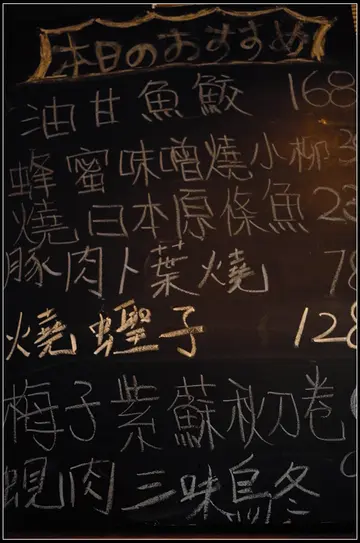 本日のおすすめ
油甘魚鮫 168
蜂蜜味噌燒小柳 3
燒日本原條魚 23
豚肉卜葉燒 78
燒蟶子 128
梅子紫蘇秋刀卷
蜆肉三味烏冬